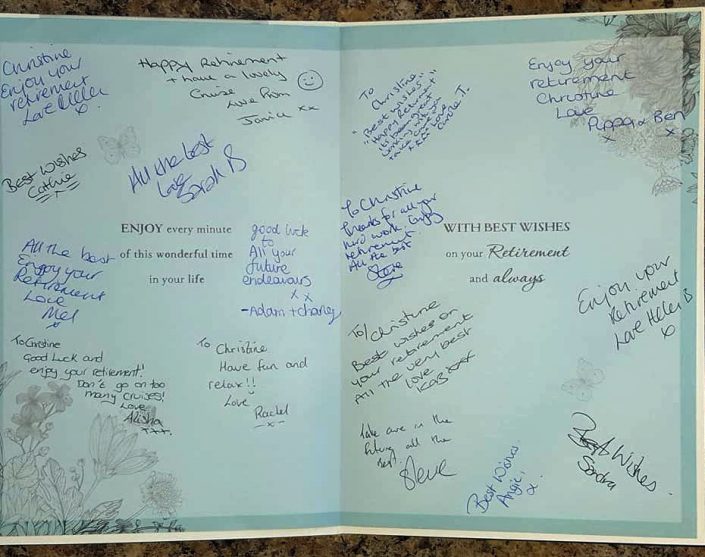 Christine
Enjoy your
retirement
Love Helen
x
Happy Retirement
+ have a lovely
Cruise
Love from
Janice xx
Best Wishes
Cathie
All the best
Love
Sarah B
ENJOY every minute
of this wonderful time
in your life
good luck
to
All your
future
endeavours
x x
-Adam + charley
All the best
Enjoy your
Retirement
Love
Mel
x
To Christine
Good Luck and
enjoy your retirement!
Don't go on too
many Cruises!
Love
Alisha
xxx.
To Christine
Have fun and
relax!!
Love
Rachel
-x-
To
Christine
"Best wishes"
"Happy Retirement"
its been great
working with you
Take care love
xxx
Enjoy your
retirement
Christine
Love
Pippa & Ben
x x
To Christine
Thanks for all your
hard work. Enjoy
retirement.
All the best
Steve
WITH BEST WISHES
on your Retirement
and always
Enjoy your
Retirement
Love Helen B
x
To/Christine
Best wishes on
your retirement
All the very best
love
Kaz xxx
Take care in the
future all the
Best
Steve
Best Wishes
Angie
x
Best Wishes
Sandra